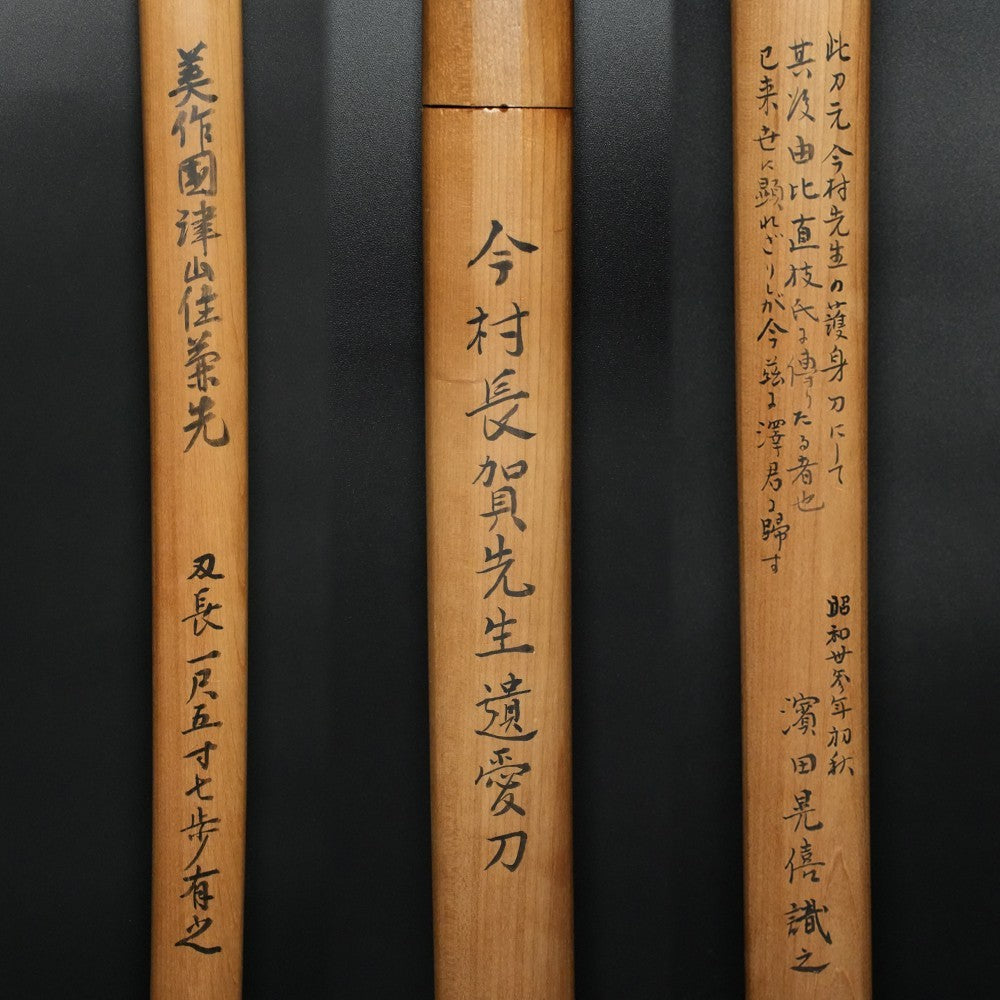 美作國津山住兼先
刃長一尺五寸七歩有之
今村長賀先生遺愛刀
此刀元今村先生の護身刀にして
其後由比直枝氏に傳りたる者也
已来世に顕れざりしが今茲に澤君に歸す
昭和廿参年初秋
濱田晃僖識之